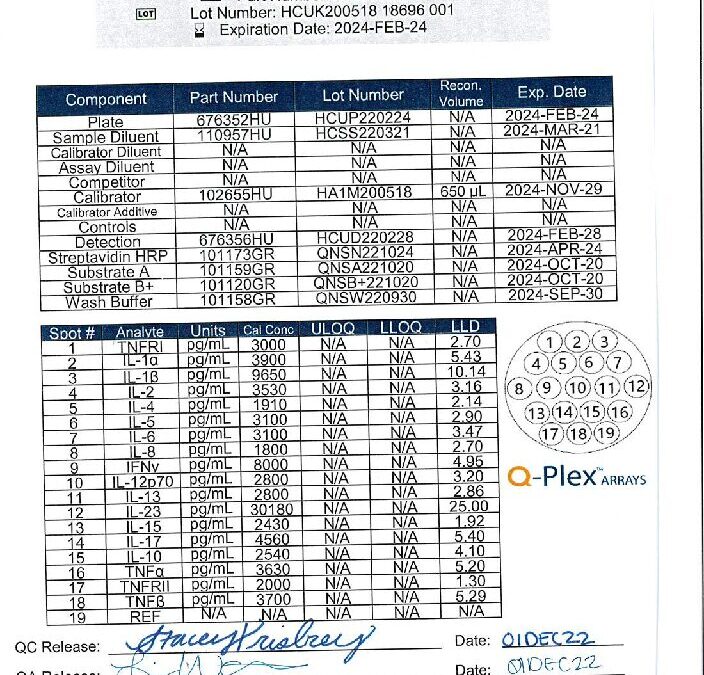 Lot Number: HCUK200518 18696 001
LOT
Expiration Date: 2024-FEB-24
Component Part Number Lot Number Recon. Volume Exp. Date
Plate 676352HU HCUP220224 N/A 2024-FEB-24
Sample Diluent 110957HU HCSS220321 N/A 2024-MAR-21
Calibrator Diluent N/A N/A N/A N/A
Assay Diluent N/A N/A N/A N/A
Competitor N/A N/A N/A N/A
Calibrator 102655HU HA1M200518 650 µL 2024-NOV-29
Calibrator Additive N/A N/A N/A N/A
Controls N/A N/A N/A N/A
Detection 676356HU HCUD220228 N/A 2024-FEB-28
Streptavidin HRP 101173GR QNSN221024 N/A 2024-APR-24
Substrate A 101159GR QNSA221020 N/A 2024-OCT-20
Substrate B+ 101120GR QNSB+221020 N/A 2024-OCT-20
Wash Buffer 101158GR QNSW220930 N/A 2024-SEP-30
Spot # Analyte Units Cal Conc ULOQ LLOQ LLD
1 TNFRI pg/mL 3000 N/A N/A 2.70
2 IL-1α pg/mL 3900 N/A N/A 5.43
3 IL-1β pg/mL 9650 N/A N/A 10.14
4 IL-2 pg/mL 3530 N/A N/A 3.16
5 IL-4 pg/mL 1910 N/A N/A 2.14
6 IL-5 pg/mL 3100 N/A N/A 2.90
7 IL-6 pg/mL 3100 N/A N/A 3.47
8 IL-8 pg/mL 1800 N/A N/A 2.70
9 IFNγ pg/mL 8000 N/A N/A 4.95
10 IL-12p70 pg/mL 2800 N/A N/A 3.20
11 IL-13 pg/mL 2800 N/A N/A 2.86
12 IL-23 pg/mL 30180 N/A N/A 25.00
13 IL-15 pg/mL 2430 N/A N/A 1.92
14 IL-17 pg/mL 4560 N/A N/A 5.40
15 IL-10 pg/mL 2540 N/A N/A 4.10
16 TNFα pg/mL 3630 N/A N/A 5.20
17 TNFRII pg/mL 2000 N/A N/A 1.30
18 TNFβ pg/mL 3700 N/A N/A 5.29
19 REF N/A N/A N/A N/A N/A
1 2 3
4 5 6 7
8 9 10 11 12
13 14 15 16
17 18 19
Q-Plex™ ARRAYS
QC Release: Date: 01DEC22
Date: 01DEC22